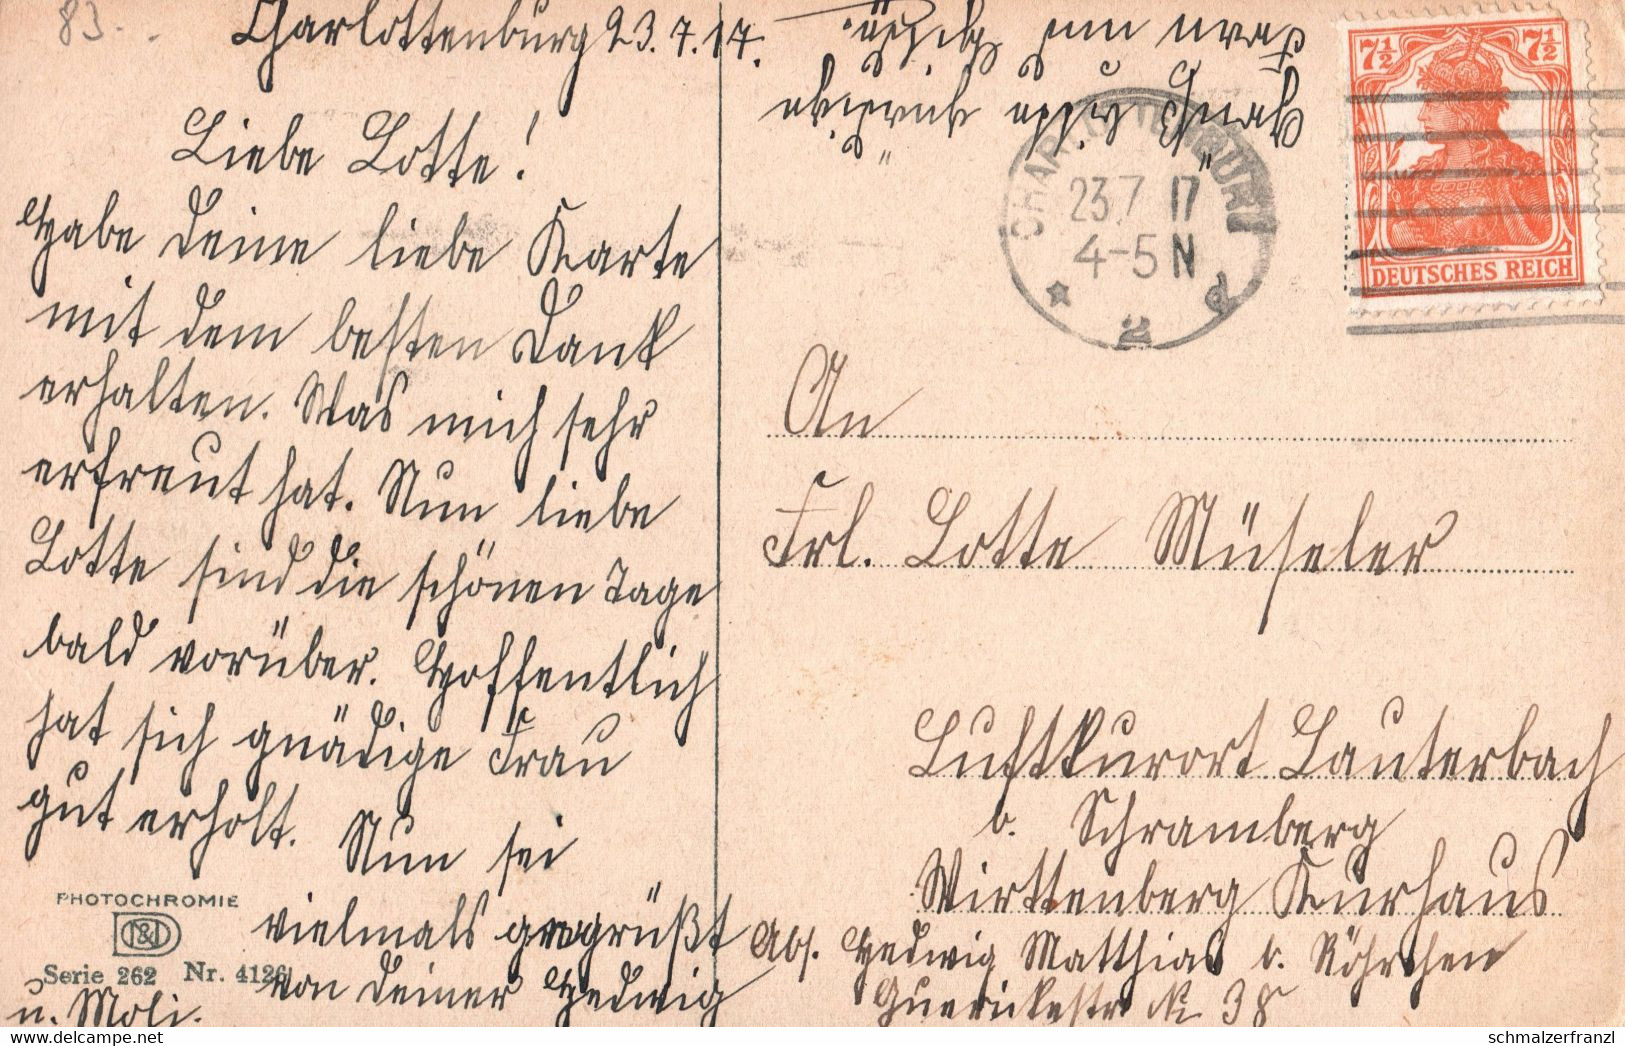 83.
Charlottenburg 23.7.17.
Liebe Lotte!
Habe Deine liebe Karte
mit dem besten Dank
erhalten. Was mich sehr
erfreut hat. Nun liebe
Lotte sind die schönen Tage
bald vorüber. Hoffentlich
hat sich gnädige Frau
gut erholt. Nun sei
vielmals gegrüßt
von Deiner Hedwig
u. Moli.
Gruß bitte
Frau und
PHOTOCHROMIE
Serie 262 Nr. 4126
CHARLOTTENBURG
23.7.17
4-5 N
* 2 d
7½ 7½
DEUTSCHES REICH
An
Frl. Lotte Müseler
Luftkurort Lauterbach
b. Schramberg
Wirttenberg Kurhaus
Abs. Hedwig Matthias b. Röhrchen
Guerickestr No 38
schmalzerfranzl